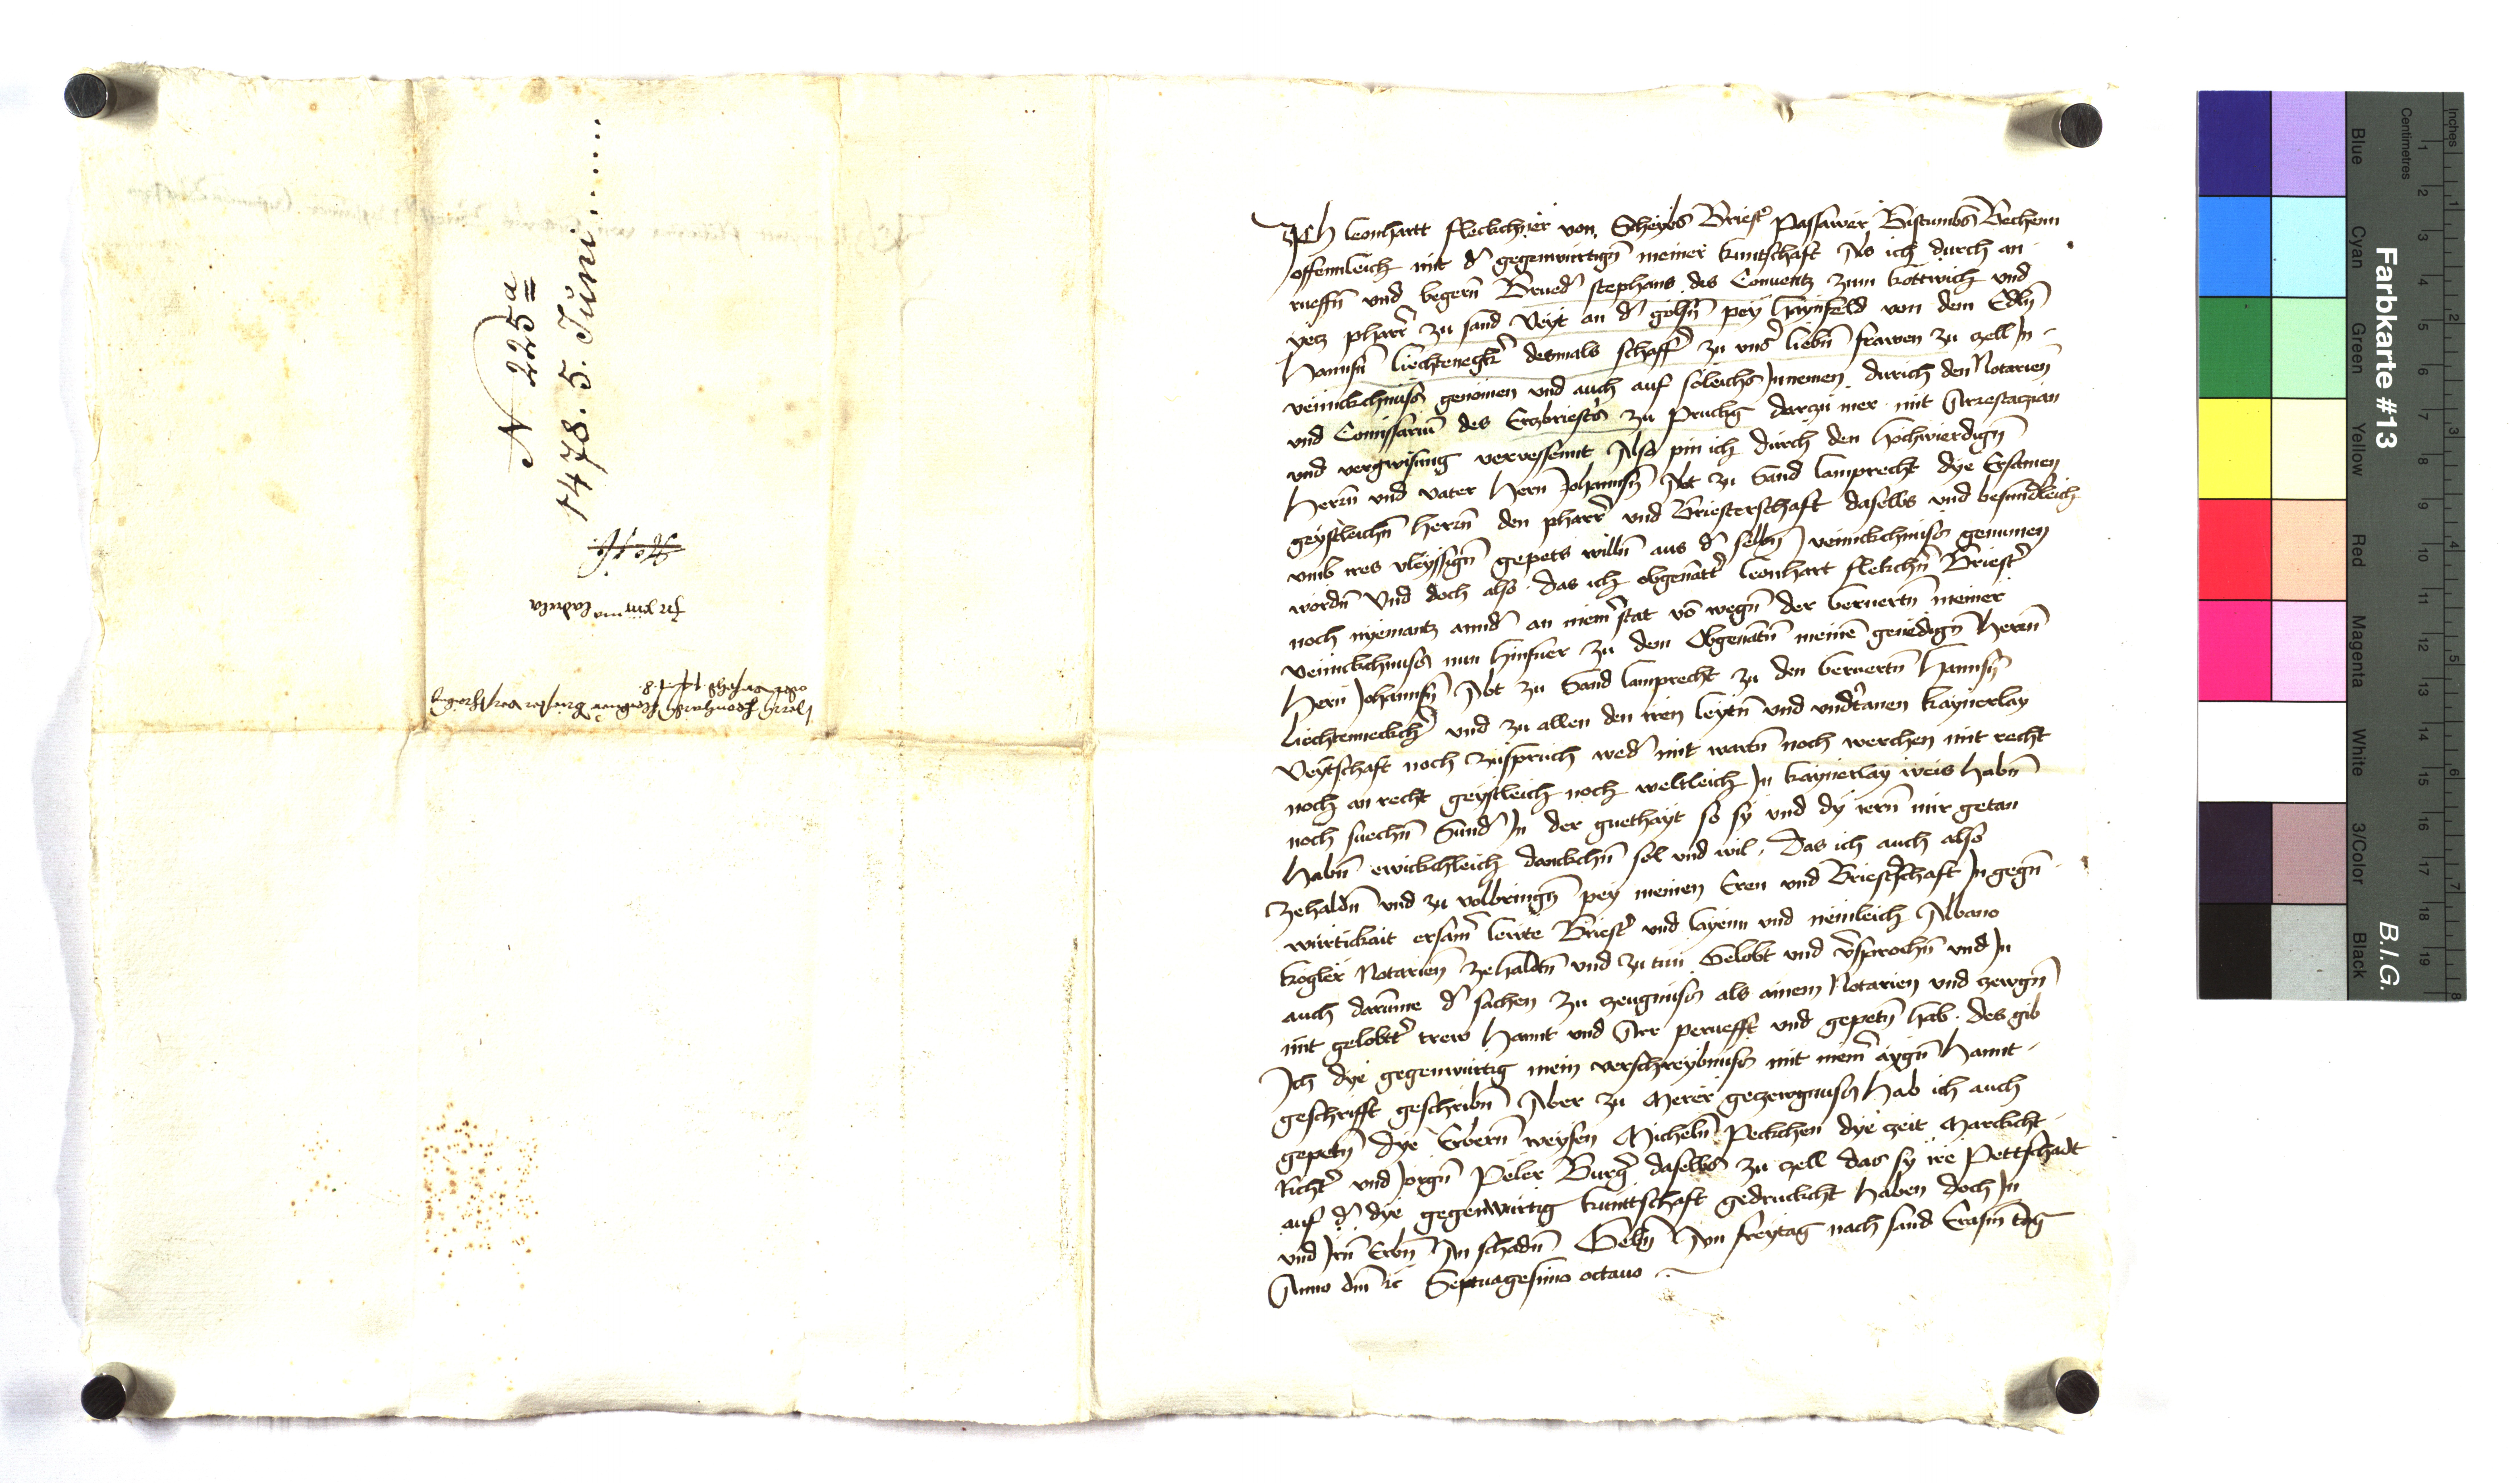 N 225a
1478. 5. Juni......
Ich leonhartt fleckchner von Scheybs Briest Passawer Bistumbs Bechenn
offennleich mit d gegenwurtign meiner kuntschaft Als ich durch an
rueffn und begern Brued stephans des Conuentz zum kottwich und
yetz pharr zu sand Veyt an d golsn pey haynfeld von dem Edln
Hannsn liechtenegkr desmals schaff zu uns liebn frawen zu zell In
venнckchnuss genomen und auch auf soleichs Innemen durich den Notarien
und Comissarium des Erzbriests zu Prukg darczu mer mit Arrestaczian
und vergwisung vervessennt Also pin ich durch den hochwierdign
herrn und vater Hern Johannsn Abt zu Sand lamprecht dye Ersamen
geystleichn herrn den pharr und Briesterschaft daselbs und besundleich
umb ires vleyssign gepets willn aus d selbn venнckchnuss genumen
wordn Und doch also das ich obgenatt leonhart flekchn Briest
noch nyemantz annd an meinr stat vo wegn der beruertn meiner
venнckchnuss nun hinfuer zu dem Obgenatn meine genedign Herrn
Hern Johannsn Abt zu Sand lamprecht zu den beruertn Hannsn
liechtenneckch und zu allen den iren leytn und undtanen kaynerlay
Veytschaft noch zuspruch wed mit warn noch werchen mit recht
noch an recht geystleich noch weltleich In kaynerlay weis habn
noch suechn Sund In der guethayt so sy und dy iern mir getan
habn ewickchleich danckchn sol und wil. Das ich auch also
zehaldn und zu volbringn pey meinen Eren und Briestschaft In gegn
wurtickait ersam lewte Briest und layenn und nemleich Albano
kogler Notarien zehaldn und zu tun Gelobt und vsprochn und In
auch darumme d sachen zu zeugnuss als ainem Notarien und zewgn
mit gelobtt trew hannt und Arr peruefft und gepetn hab. des gib
Ich dye gegenwurtig mein verschreybnuss mit meinr aygn hannt
geschrifft geschribn Aber zu Merer geczewgnuss hab ich auch
gepetn dye Erbern weysen Micheln Peckchen dye zeit Marckcht
Richt und Jorgn Peler Burg daselbs zu zell das sy ire Pettschadt
auf d dye gegenwurtig kunttschaft gedruckcht haben doch In
und Irn Erbn An schadn Gebn Am freytag nach sand Erasm tag
Anno dm rc Septuagesimo octauo
Farbkarte #13
B.I.G.
Inches
Centimetres
1 2 3 4 5 6 7 8
1 2 3 4 5 6 7 8 9 10 11 12 13 14 15 16 17 18 19
Blue
Cyan
Green
Yellow
Red
Magenta
White
3/Color
Black